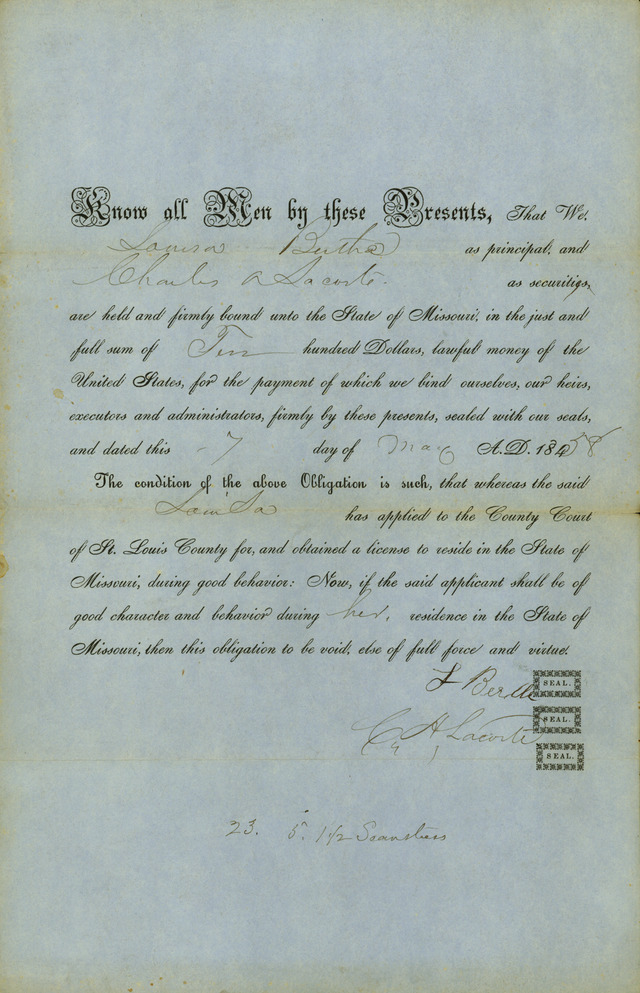 Know all Men by these Presents, That We,
Louisa Bertha as principal, and
Charles A Lacoste. as securities,
are held and firmly bound unto the State of Missouri, in the just and
full sum of hundred Dollars, lawful money of the
United States, for the payment of which we bind ourselves, our heirs,
executors and administrators, firmly by these presents, sealed with our seals,
and dated this 7 day of May A. D. 1858
The condition of the above Obligation is such, that whereas the said
Louisa has applied to the County Court
of St. Louis County for, and obtained a license to reside in the State of
Missouri, during good behavior: Now, if the said applicant shall be of
good character and behavior during her, residence in the State of
Missouri, then this obligation to be void, else of full force and virtue.
SEAL.
C. H. Lacoste SEAL.
SEAL.
23. 5. 1 1/2 Seamstress